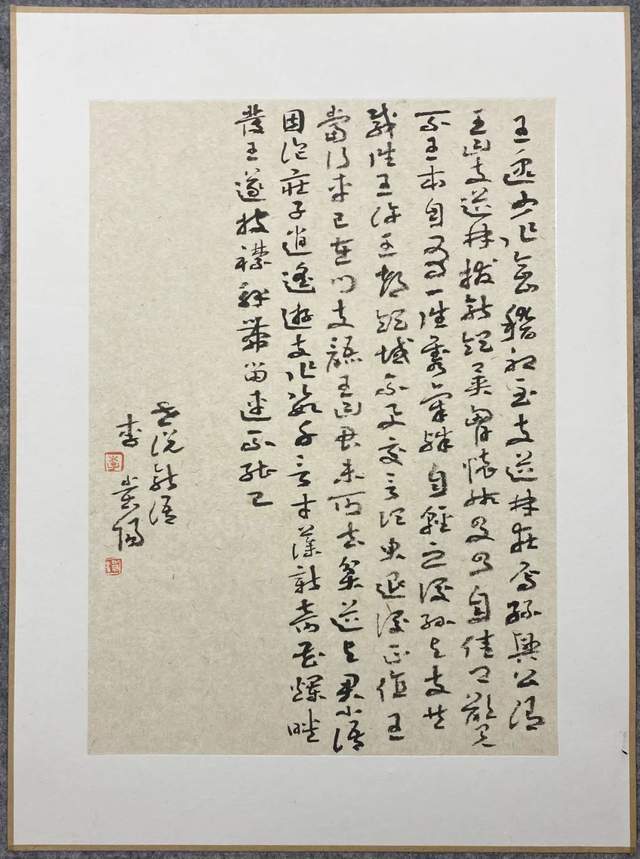 王逸少作會稽初至支道林在焉孫興公謂
王曰支道林拔新領異胸懷所及乃自佳卿欲見
不王本自有一往雋氣殊自輕之後孫與支共
載往王許王都領域不與交言須臾退後正值王
當行車已在門支語王曰君未可去貧道與君小語
因論莊子逍遙遊支作數千言才藻新奇花爛映
發王遂披襟解帶留連不能已
世說新語
李